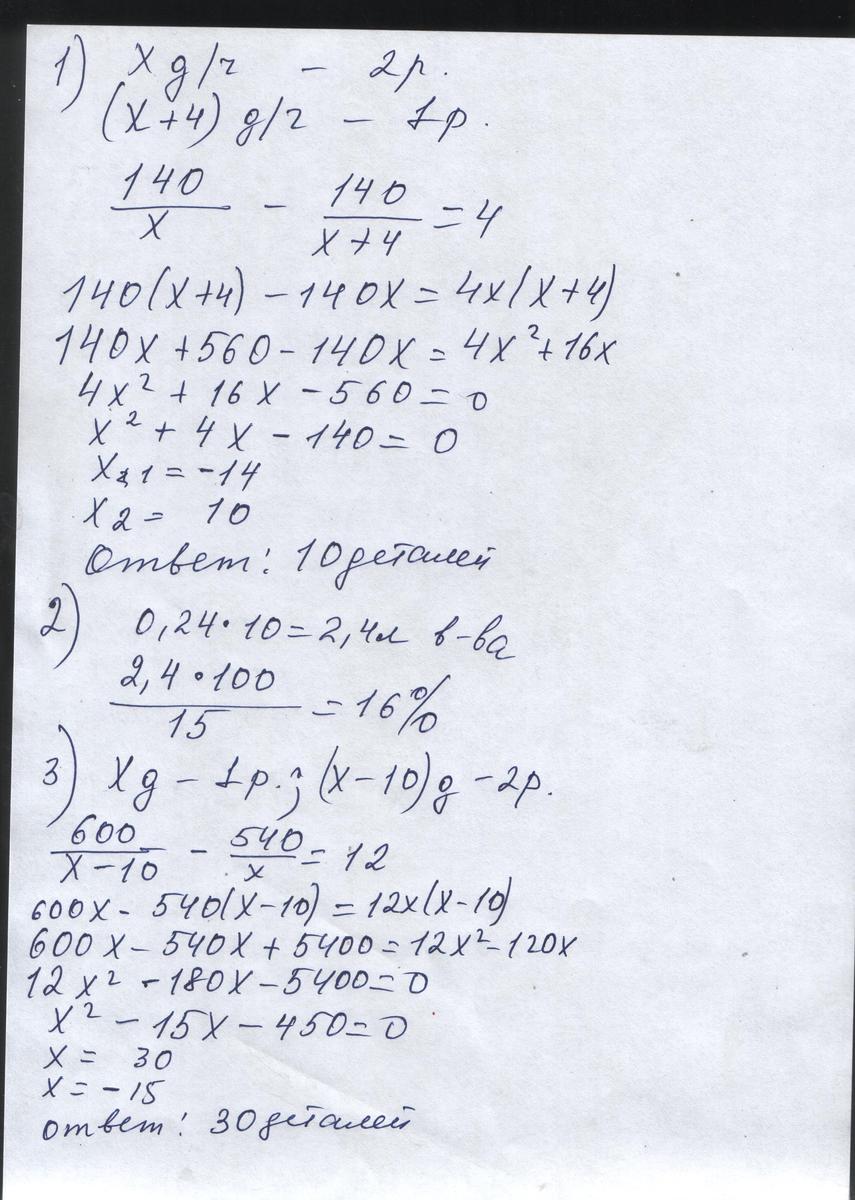 1) x д/ч – 2р.
(x+4) д/ч – 1р.
140/x - 140/(x+4) = 4
140(x+4) - 140x = 4x(x+4)
140x + 560 - 140x = 4x² + 16x
4x² + 16x - 560 = 0
x² + 4x - 140 = 0
x₁ = -14
x₂ = 10
Ответ: 10 деталей
2) 0,24·10 = 2,4л в-ва
2,4·100/15 = 16%
3) xд – 1р.; (x-10)д – 2р.
600/(x-10) - 540/x = 12
600x - 540(x-10) = 12x(x-10)
600x - 540x + 5400 = 12x² - 120x
12x² - 180x - 5400 = 0
x² - 15x - 450 = 0
x = 30
x = -15
ответ: 30 деталей